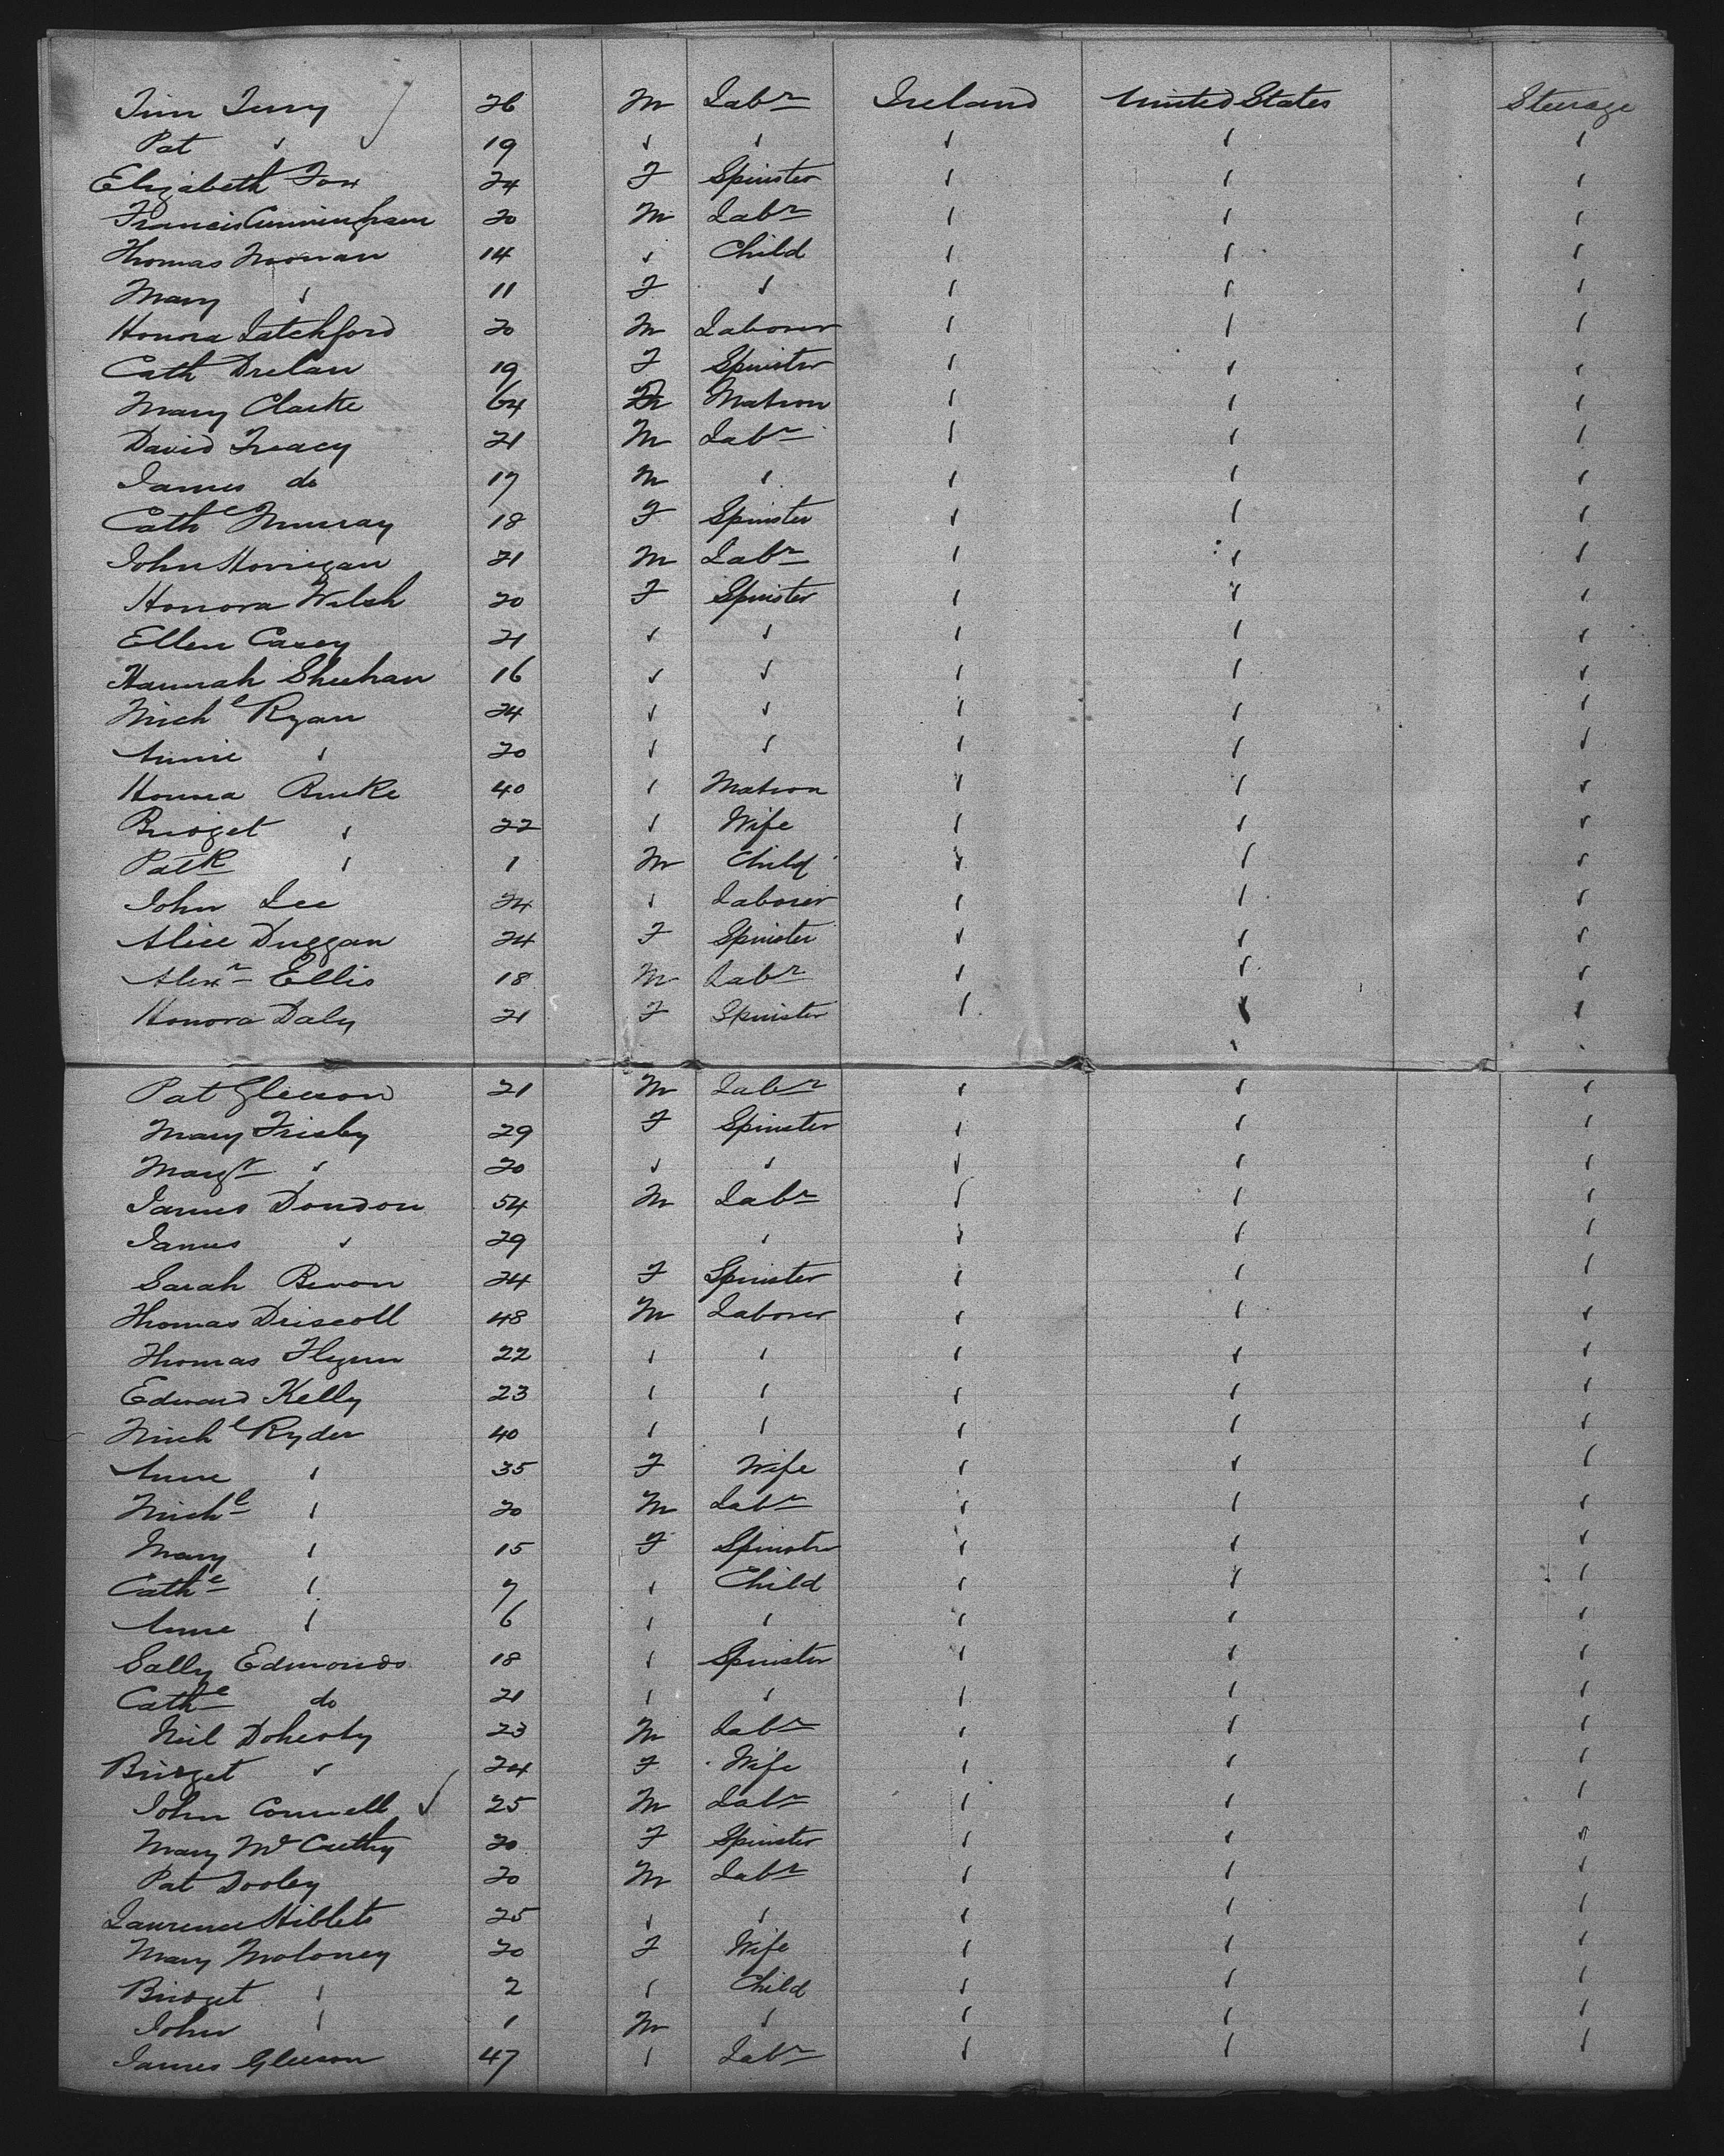 Tim Terry 26 M Labr Ireland United States Steerage
Pat " 19 " " " " "
Elizabeth Fox 24 F Spinster " " "
Francis Cunningham 20 M Labr " " "
Thomas Noonan 14 " Child " " "
Mary " 11 F " " " "
Honora Latchford 20 M Laborer " " "
Cath 19 F Spinster " " "
Mary Clarke 64 F Matron " " "
David Treacy 21 M Labr " " "
James do 17 M " " " "
Cathe Murray 18 F Spinster " " "
John Horrigan 21 M Labr " " "
Honora Welsh 20 F Spinster " " "
Ellen Casey 21 " " " " "
Hannah Sheehan 16 " " " " "
Michl Ryan 24 " " " " "
Annie " 20 " " " " "
Honora Burke 40 " Matron " " "
Bridget " 22 " Wife " " "
Patk " 1 M Child " " "
John Lee 24 " Laborer " " "
Alice Duggan 24 F Spinster " " "
Alexr Ellis 18 M Labr " " "
Honora Daly 21 F Spinster " " "
Pat Gleeson 21 M Labr " " "
Mary Frisby 29 F Spinster " " "
Margt " 20 " " " " "
James Dondon 54 M Labr " " "
James " 29 " " " "
Sarah 24 F Spinster " " "
Thomas Driscoll 48 M Laborer " " "
Thomas Flynn 22 " " " " "
Edward Kelly 23 " " " " "
Michl Ryder 40 " " " " "
Anne " 35 F Wife " " "
Michl " 20 M Labr " " "
Mary " 15 F Spinster " " "
Cathe " 7 " Child " " "
Anne " 6 " " " " "
Sally Edmonds 18 " Spinster " " "
Cathe do 21 " " " " "
Neil Doherty 23 M Labr " " "
Bridget " 24 F Wife " " "
John Connell 25 M Labr " " "
Mary McCarthy 20 F Spinster " " "
Pat Dooley 20 M Labr " " "
Laurence Hiblets 25 " " " " "
Mary Moloney 20 F Wife " " "
Bridget " 2 " Child " " "
John " 1 M " " " "
James Gleeson 47 " Labr " " "